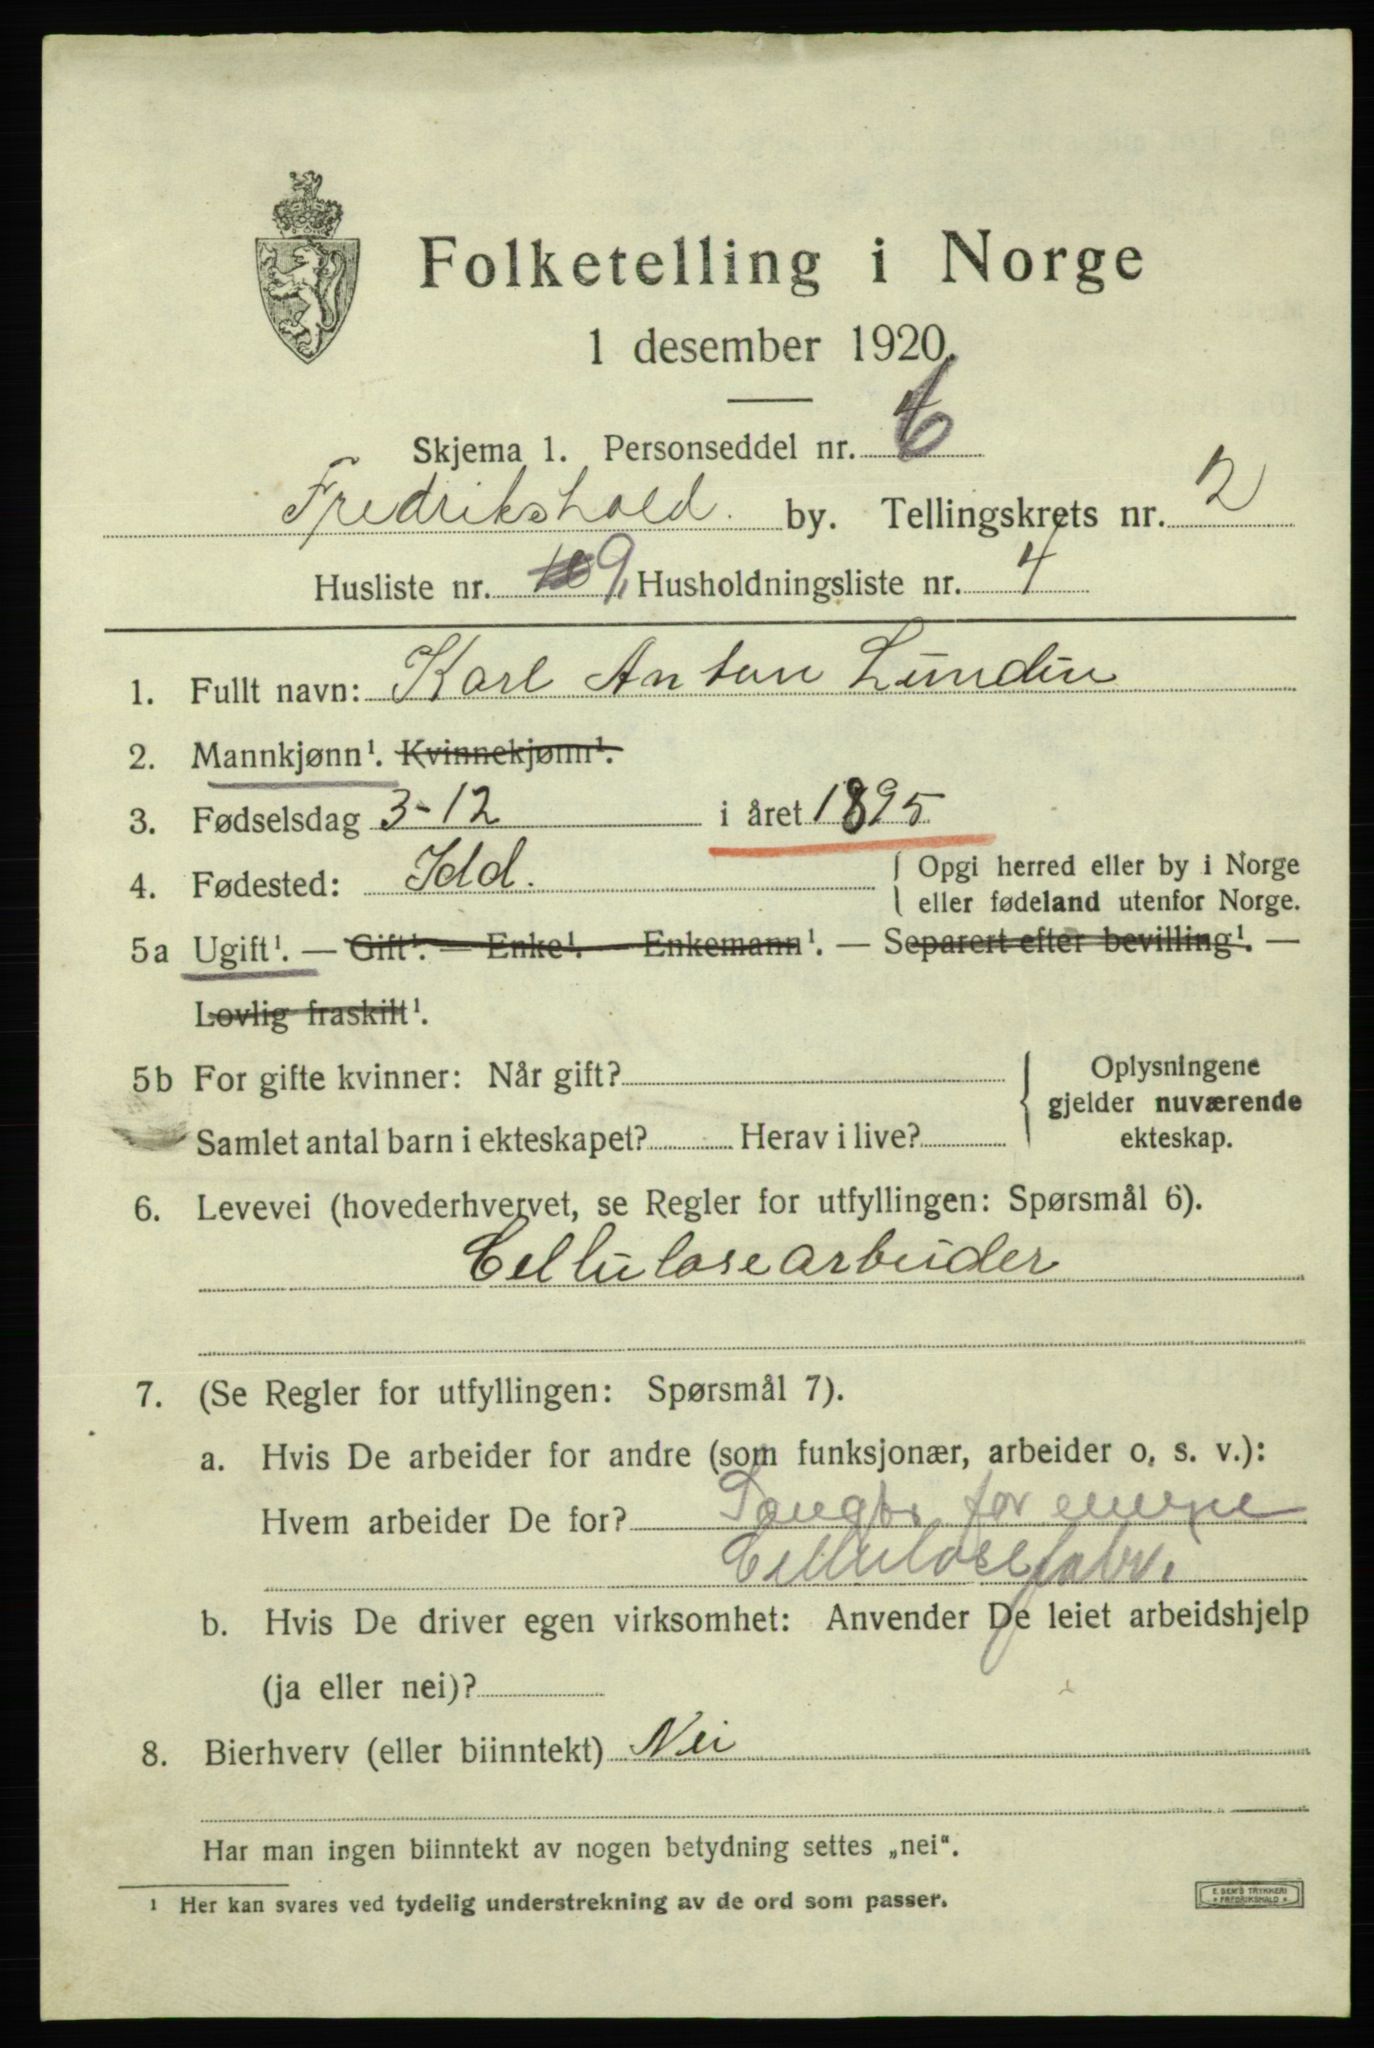 Folketelling i Norge
1 desember 1920.
Skjema 1. Personseddel nr. 6
Fredrikshald. by. Tellingskrets nr. 2
Husliste nr. 9, Husholdningsliste nr. 4
1. Fullt navn: Karl Anton Lundin
2. Mannkjønn¹. Kvinnekjønn¹.
3. Fødselsdag 3-12 i året 1895
4. Fødested: Idd. { Opgi herred eller by i Norge
eller fødeland utenfor Norge.
5a Ugift¹. — Gift¹. — Enke¹. — Enkemann¹. — Separert efter bevilling¹. —
Lovlig fraskilt¹.
5b For gifte kvinner: Når gift?
Samlet antal barn i ekteskapet? Herav i live?
Oplysningene
gjelder nuværende
ekteskap.
6. Levevei (hovederhvervet, se Regler for utfyllingen: Spørsmål 6).
Cellulosearbeider
7. (Se Regler for utfyllingen: Spørsmål 7).
a. Hvis De arbeider for andre (som funksjonær, arbeider o. s. v.):
Hvem arbeider De for?
Cellulosefabr.
b. Hvis De driver egen virksomhet: Anvender De leiet arbeidshjelp
(ja eller nei)?
8. Bierhverv (eller biinntekt) Nei
Har man ingen biinntekt av nogen betydning settes „nei“.
¹ Her kan svares ved tydelig understrekning av de ord som passer.
E. SEM'S TRYKKERI
FREDRIKSHALD